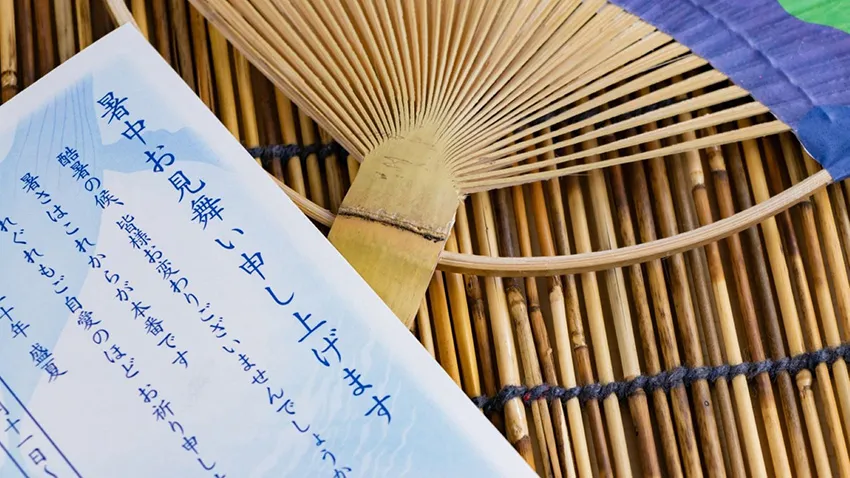 暑中お見舞い申し上げます
酷暑の候、皆様お変わりございませんでしょうか
暑さはこれからが本番です
れぐれもご自愛のほどお祈り申し
十年 盛夏
十一日〜